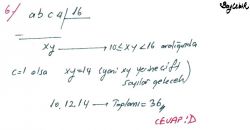 6-) abca | 16
xy → 10≤xy<16 aralığında
c=1 olsa xy=14 (yani xy yerine çift
sayılar gelecek)
10, 12, 14 → Toplamı=36
CEVAP:D